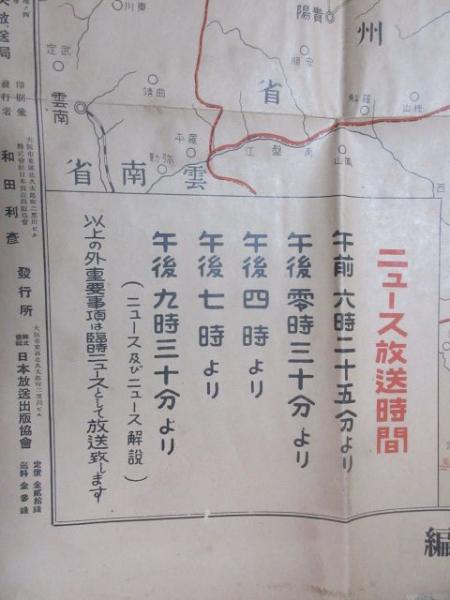 ニュース放送時間
午前 六時二十五分より
午後 零時三十分より
午後 四時 より
午後 七時 より
午後 九時三十分より
(ニュース及びニュース解説)
以上の外重要事項は臨時ニュースとして放送致します
編
州
省
貴陽
安順
東川
武定
曲靖
雲南
羅平
江盤南
雲南省
西
放送局
發行者
印刷兼
和田利彦
發行所
株式會社 日本放送出版協會
定價 金貳拾錢
送料 金參錢